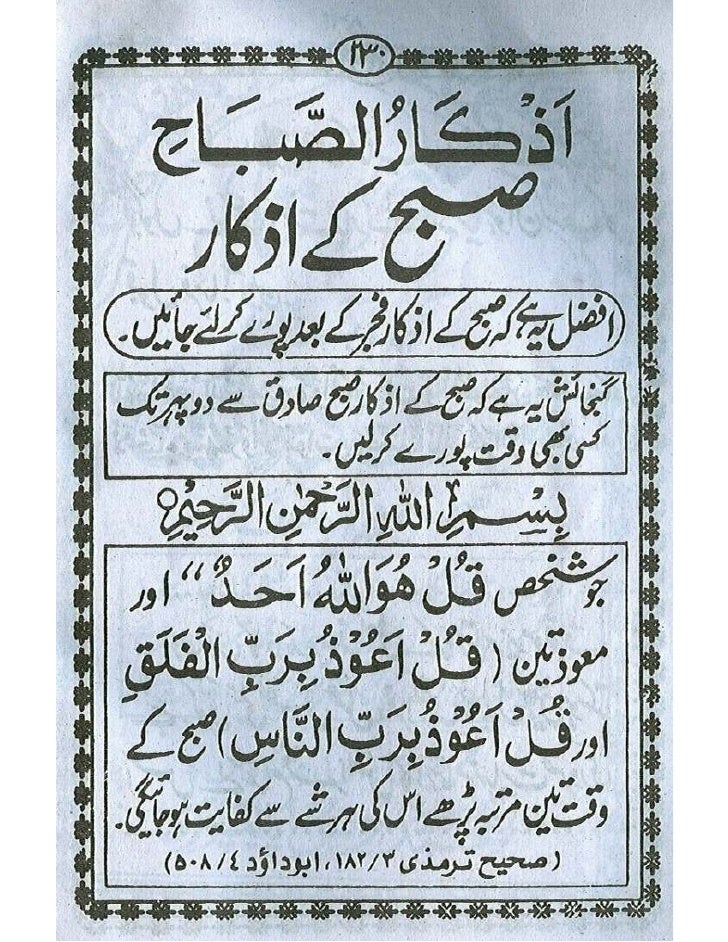 ۲۳۰
اَذْكَارُ الصَّبَاحِ
صبح کے اذکار
افضل یہ ہے کہ صبح کے اذکار فجر کے بعد پورے کر لئے جائیں۔
گنجائش یہ ہے کہ صبح کے اذکار صبح صادق سے دوپہر تک
کسی بھی وقت پورے کرلیں۔
بِسْمِ اللهِ الرَّحْمٰنِ الرَّحِيْمِ
جو شخص قُلْ هُوَ اللهُ اَحَدٌ ،، اور
معوذتین (قُلْ اَعُوْذُ بِرَبِّ الْفَلَقِ
اور قُلْ اَعُوْذُ بِرَبِّ النَّاسِ) صبح کے
وقت تین مرتبہ پڑھے اس کی ہر شے سے کفایت ہو جائیگی۔
(صحیح ترمذی ۱۸۲/۳، ابوداؤد ۵۰۸/٤)